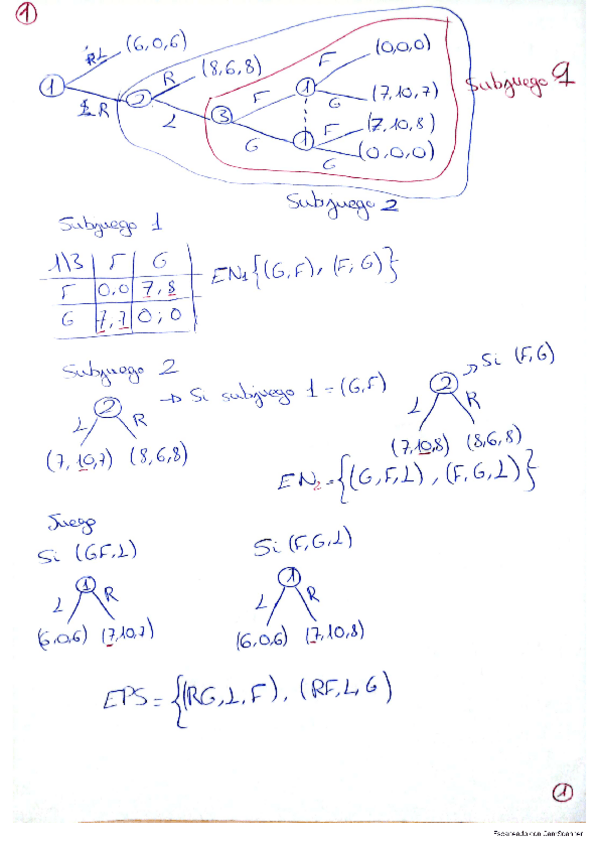 1
RL (6,0,6)
1 R
2 R (8,6,8)
L
3 F
G
1 F (0,0,0)
G (7,10,7)
1 F (7,10,8)
G (0,0,0)
Subjuego 1
Subjuego 2
Subjuego 1
1\3 F G
F 0,0 7,8
G 7,7 0;0
EN1{(G,F), (F;G)}
Subjuego 2
2 → Si subjuego 1 = (G,F)
L R
(7,10,7) (8,6,8)
2 → Si (F,G)
L R
(7,10,8) (8,6,8)
EN2={(G,F,L), (F,G,L)}
Juego
Si (GF,L) Si (F,G,L)
1 1
L R L R
(6,0,6) (7,10,7) (6,0,6) (7,10,8)
EPS={(RG,L,F), (RF,L,G)
1
Escaneado con CamScanner